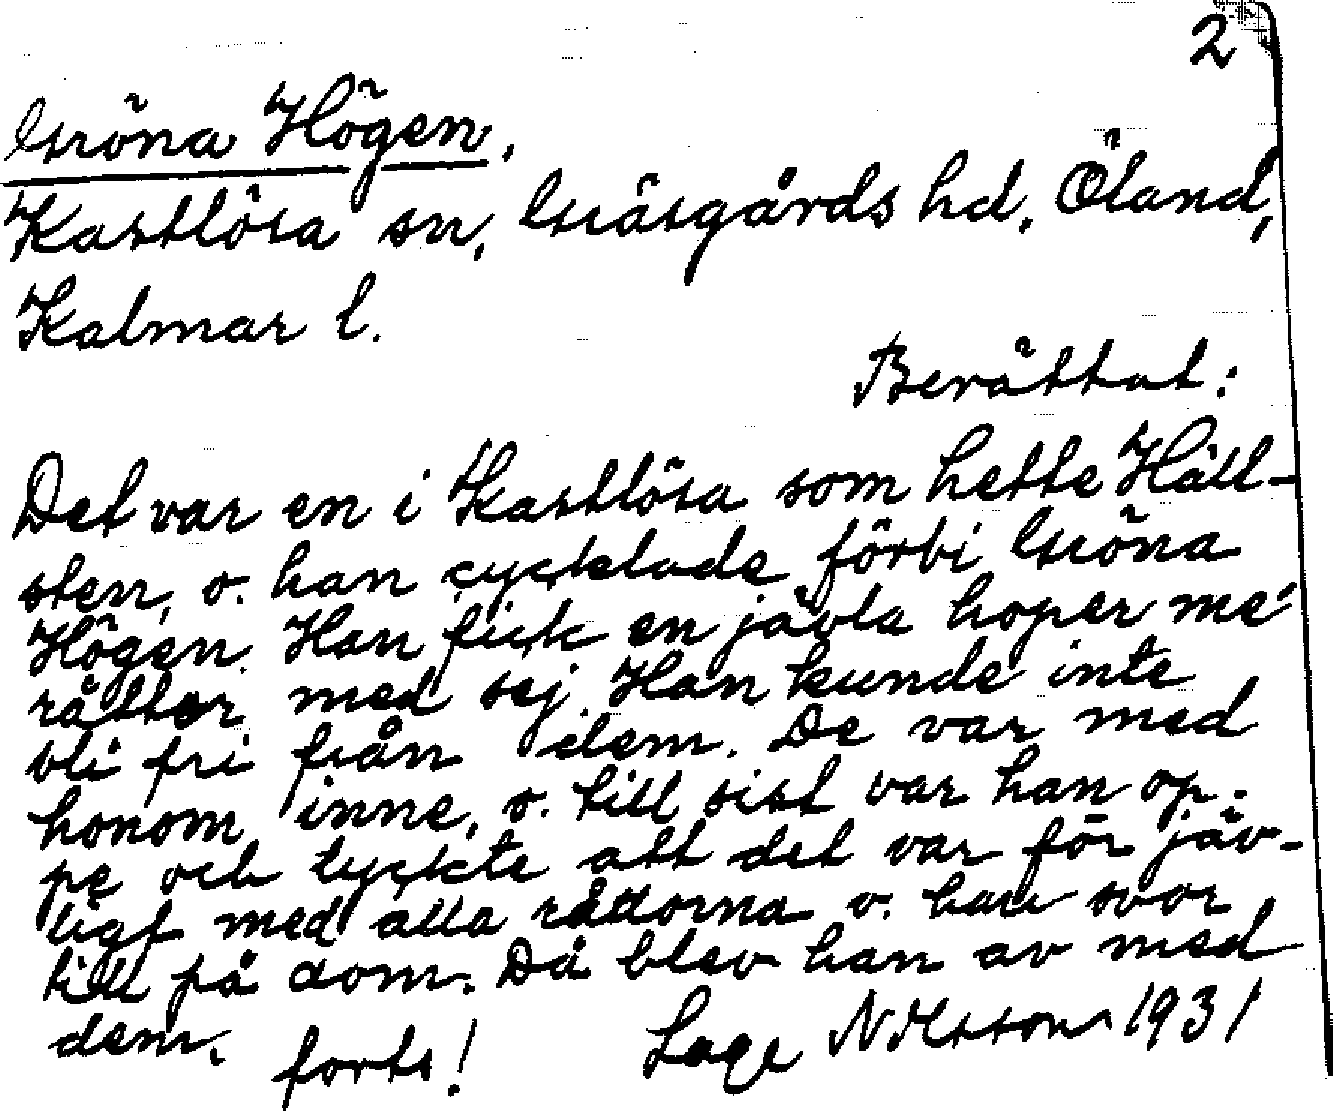 2
Gröna Högen,
Kastlösa sn, Gräsgårds hd, Öland,
Kalmar l.
Berättat:
Det var en i Kastlösa som hette Häll-
sten, o. han cycklade förbi Gröna
Högen. Han fick en jävla hoper me'
råttor med sej. Han kunde inte
bli fri från dem. De var med
honom inne, o. till sist var han op-
pe och tyckte att det var för jäv-
ligt med alla råttorna o. han svor
till på dom. Då blev han av med
dem.
forts! Lage Nilsson 1931